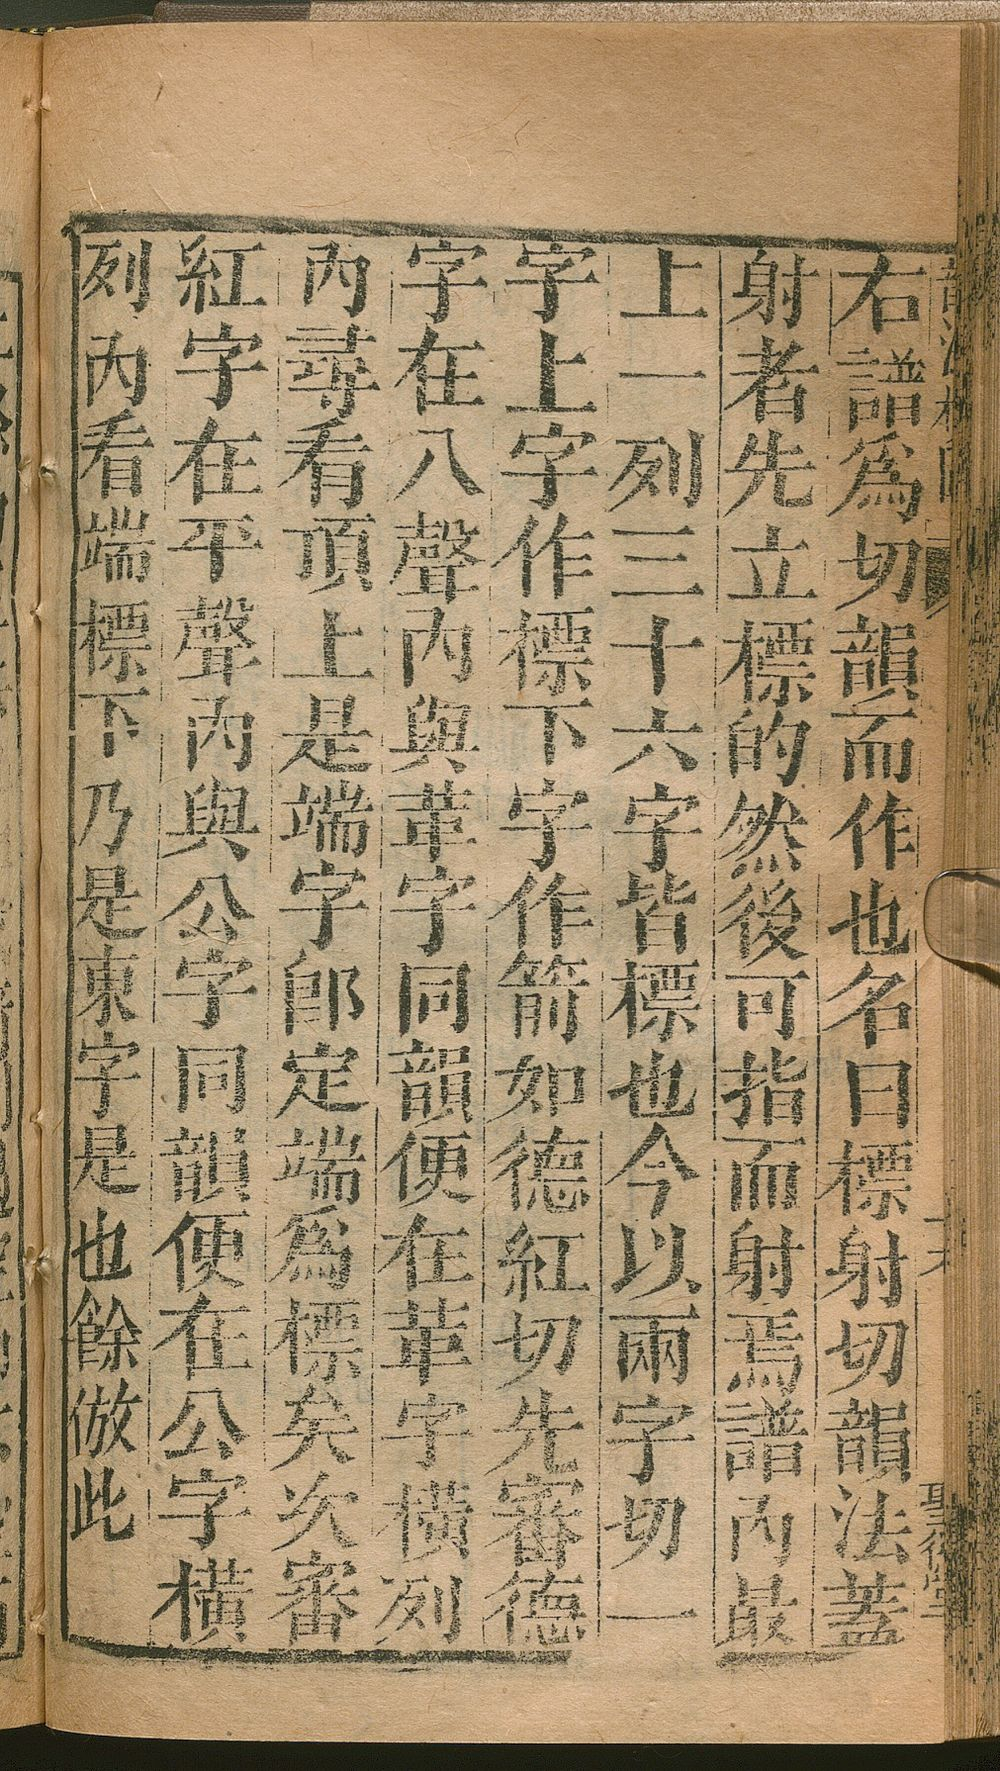 右譜為切韻而作也名曰標射切韻法蓋
射者先立標的然後可指而射焉譜內最
上一列三十六字皆標也今以兩字切一
字上字作標下字作箭如德紅切先審德
字在入聲內與革字同韻便在革字橫列
內尋看頂上是端字卽定端為標矣次審
紅字在平聲內與公字同韻便在公字橫
列內看端標下乃是東字是也餘倣此